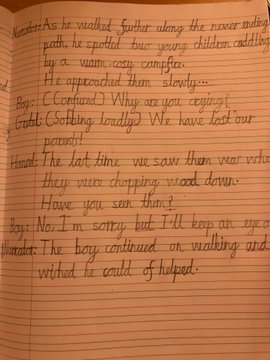 Narrator: As he walked further along the never ending
path, he spotted two young children cuddling
by a warm cosy campfire.
He approached them slowly...
Boy: (Confused) Why are you crying?
Gretel: (Sobbing loudly) We have lost our
parents!
Hansel: The last time we saw them was when
they were chopping wood down.
Have you seen them?
Boy: No, I'm sorry but I'll keep an eye o
Narrator: The boy continued on walking and
wished he could of helped.